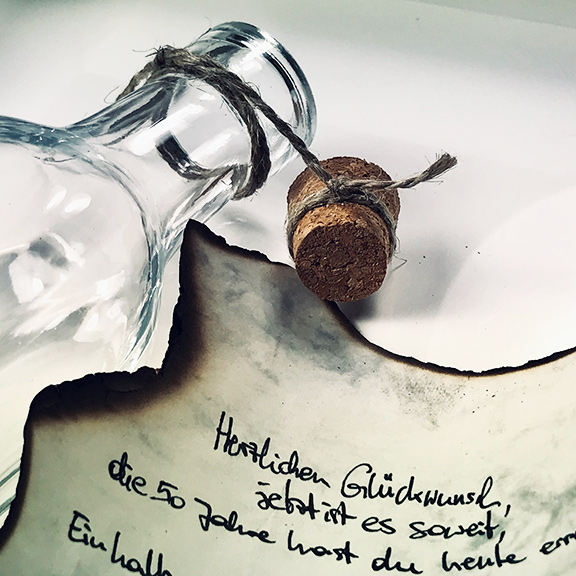 Herzlichen Glückwunsch,
jetzt ist es soweit,
die 50 Jahre hast du heute
Ein halb